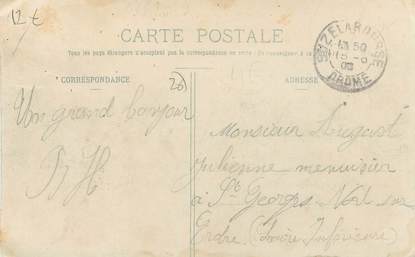 12 €
CARTE POSTALE
Tous les pays étrangers n'acceptent pas la correspondance au recto
CORRESPONDANCE
20
ADRESSE
DROME
Un grand bonjour
B H
Monsieur
Julienne menuisier
à St Georges Nort sur
Erdre (Loire Inférieure)